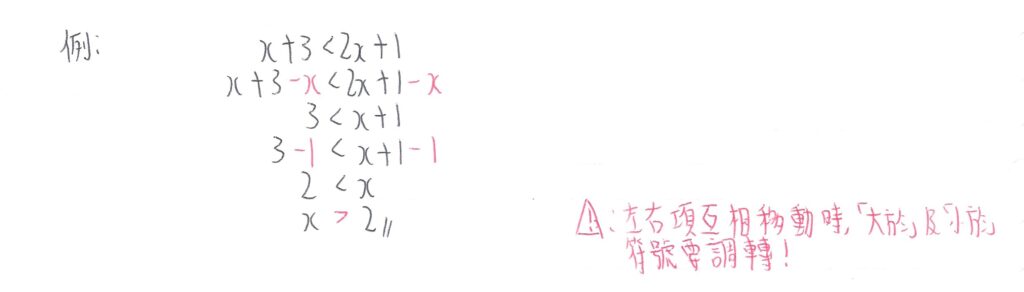 例:
x+3<2x+1
x+3-x<2x+1-x
3<x+1
3-1<x+1-1
2<x
x>2
⚠:左右項互相移動時,「大於」及「小於」
符號要調轉!